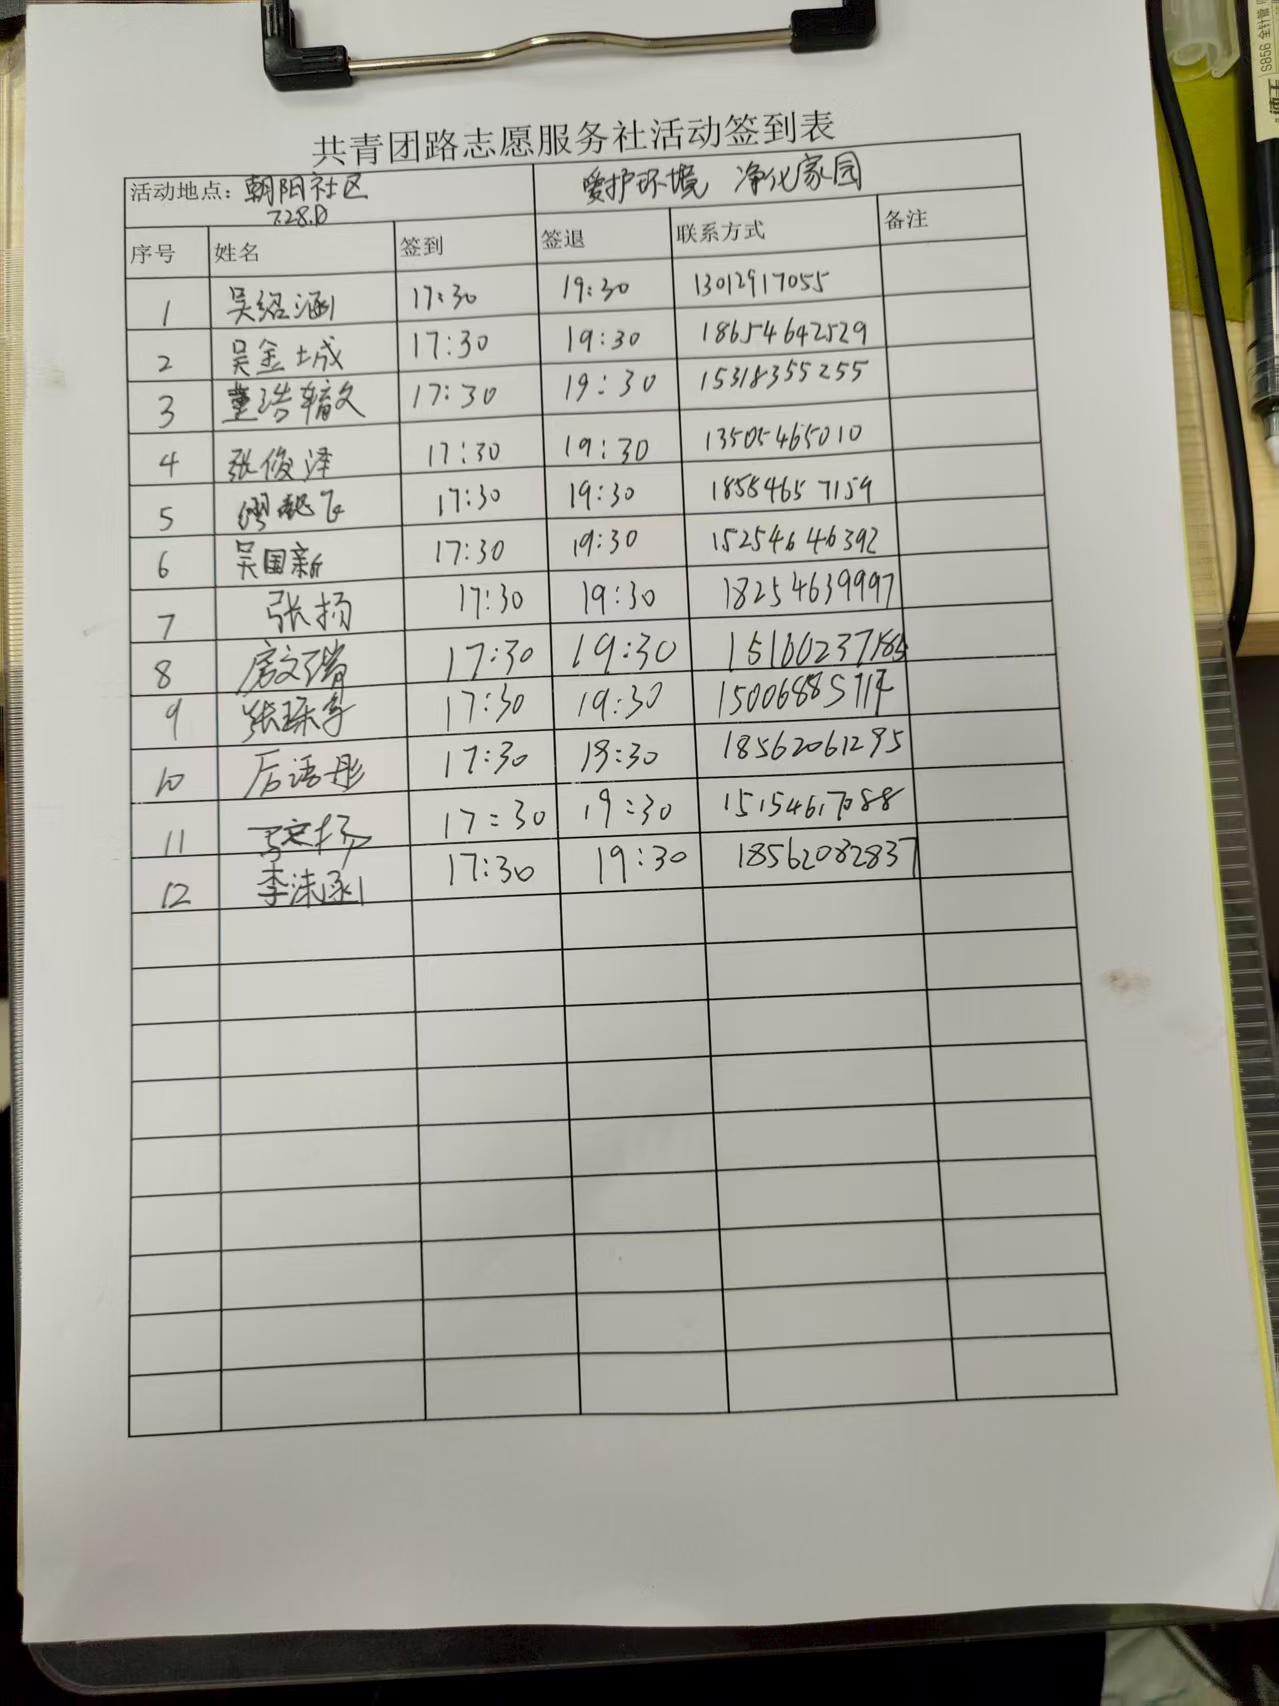 共青团路志愿服务社活动签到表
活动地点：朝阳社区 爱护环境 净化家园
7.28.D
序号 姓名 签到 签退 联系方式 备注
1 吴绍涵 17:30 19:30 13012917055
2 吴金城 17:30 19:30 18654642529
3 董浩翰文 17:30 19:30 15318355255
4 张俊泽 17:30 19:30 13505465010
5 17:30 19:30 18554657159
6 吴国新 17:30 19:30 15254646392
7 张扬 17:30 19:30 18254639997
8 房文瑞 17:30 19:30 15160237185
9 17:30 19:30 
10 后语彤 17:30 19:30 18562061295
11 17:30 19:30 15154617088
12 李沫函 17:30 19:30 18562082837
S856 全针管